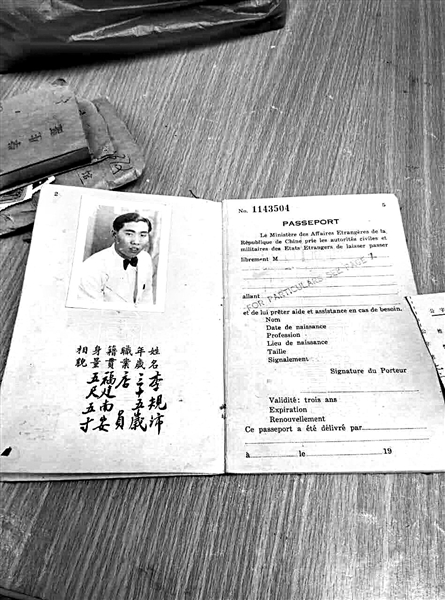 2
姓名 李規沛
年歲 三十五歲
職業 店員
籍貫 福建南安
身量 五尺五寸
相貌
No. 1143504
5
PASSEPORT
Le Ministère des Affaires Etrangères de la
République de Chine prie les autorités civiles et
militaires des Etats Etrangers de laisser passer
librement M
FOR PARTICULARS SEE PAGE
allant
et de lui prêter aide et assistance en cas de besoin.
Nom
Date de naissance
Profession
Lieu de naissance
Taille
Signalement
Signature du Porteur
Validité: trois ans
Expiration
Renouvellement
Ce passeport a été délivré par
à le 19